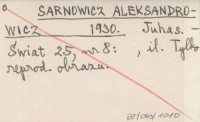 a SARNOWICZ ALEKSANDRO-
WICZ 1930. Juhas. –
Świat 25, nr 8: , il. Tylko
reprod. obrazu.